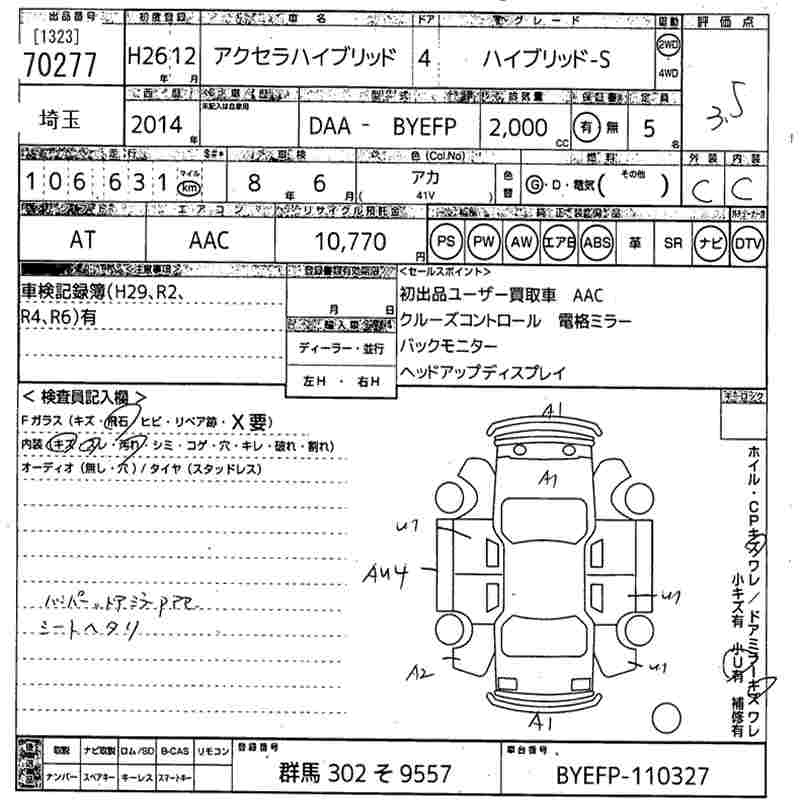 出品番号 初度登録 車名 ドア グレード 駆動 評価点
[1323]
70277 H26 12 アクセラハイブリッド 4 ハイブリッド-S 2WD
年 月 4WD
3.5
埼玉 2014 年 DAA - BYEFP 2,000 CC 有 無 5 名
型式 排気量 保証書 定員
走行 車検 色(Col.No) 燃料 外装 内装
106631 マイル km 8 年 6 月 アカ 色替 G・D・電気( その他 ) C C
( 41V )
エアコン リサイクル預託金 純正装備品
AT AAC 10,770 円 PS PW AW エアB ABS 革 SR ナビ DTV
注意事項 登録書類有効期限 <セールスポイント>
車検記録簿(H29、R2、 初出品ユーザー買取車 AAC
R4、R6)有 月 日 クルーズコントロール 電格ミラー
輸入車 バックモニター
ディーラー・並行
ヘッドアップディスプレイ
左H ・ 右H
< 検査員記入欄 >
Fガラス(キズ・飛石・ヒビ・リペア跡・X要)
内装(キズ・スレ・汚れ・シミ・コゲ・穴・キレ・破れ・割れ)
オーディオ(無し・穴)/タイヤ(スタッドレス)
A1
A1
U1
AU4
U1
A2 U1
A1
シートヘタリ
ホイル・CPキズワレ/ドアミラーキズワレ
小キズ有 小U有 補修有
取説 ナビ取説 ロム/SD B-CAS リモコン 登録番号 車台番号
ナンバー スペアキー キーレス スマートキー 群馬 302 そ 9557 BYEFP-110327